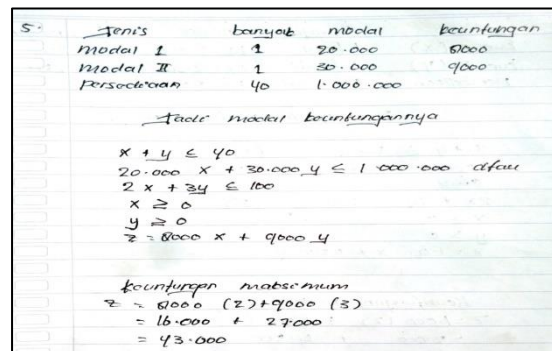 5. Jenis banyak modal keuntungan
modal I 1 20.000 8000
modal II 1 30.000 9000
persediaan 40 1.000.000
Jadi modal keuntungannya
x + y ≤ 40
20.000 x + 30.000 y ≤ 1.000.000 atau
2x + 3y ≤ 100
x ≥ 0
y ≥ 0
z = 8000 x + 9000 y
keuntungan maksimum
z = 8000 (2) + 9000 (3)
= 16.000 + 27.000
= 43.000